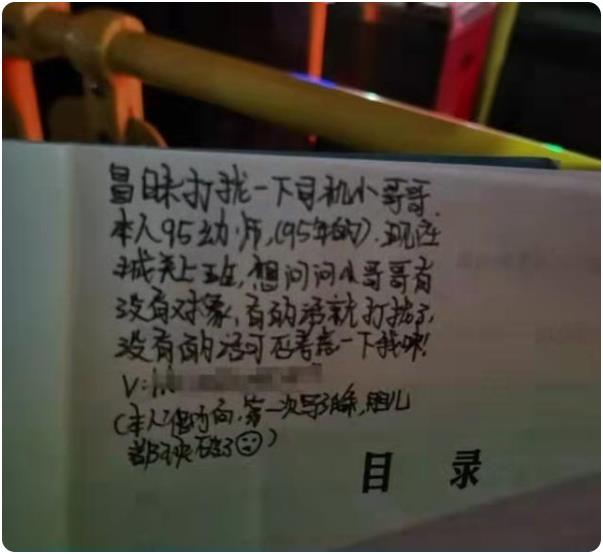 冒昧打扰一下司机小哥哥.
本人95幼师,(95年的).现在
城关上班,想问问小哥哥有
没有对象,有的话就打扰了,
没有的话可否考虑一下我呀!
V:
(本人偏内向.第一次导了麻,胆儿
都快破了☹)
目 录